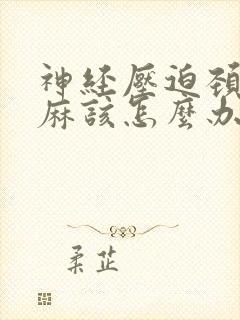 神经壓迫頚
麻該怎麼办
柔芷